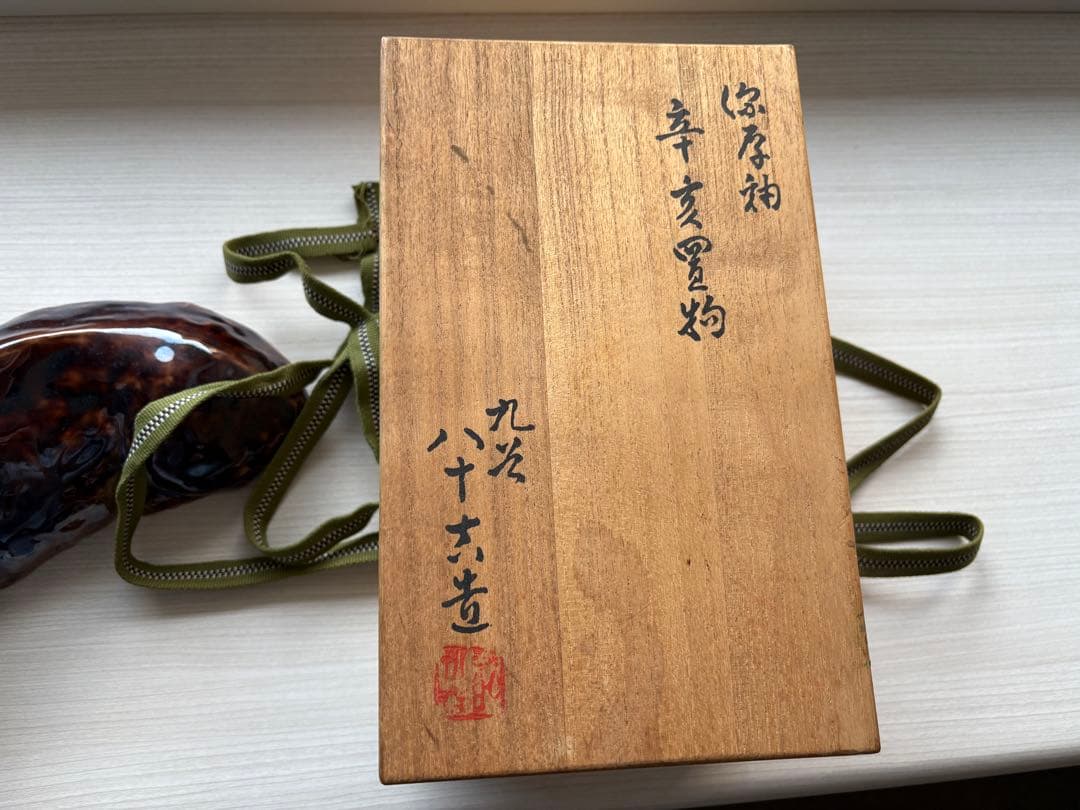 深厚釉
辛亥置物
九谷
八十吉造